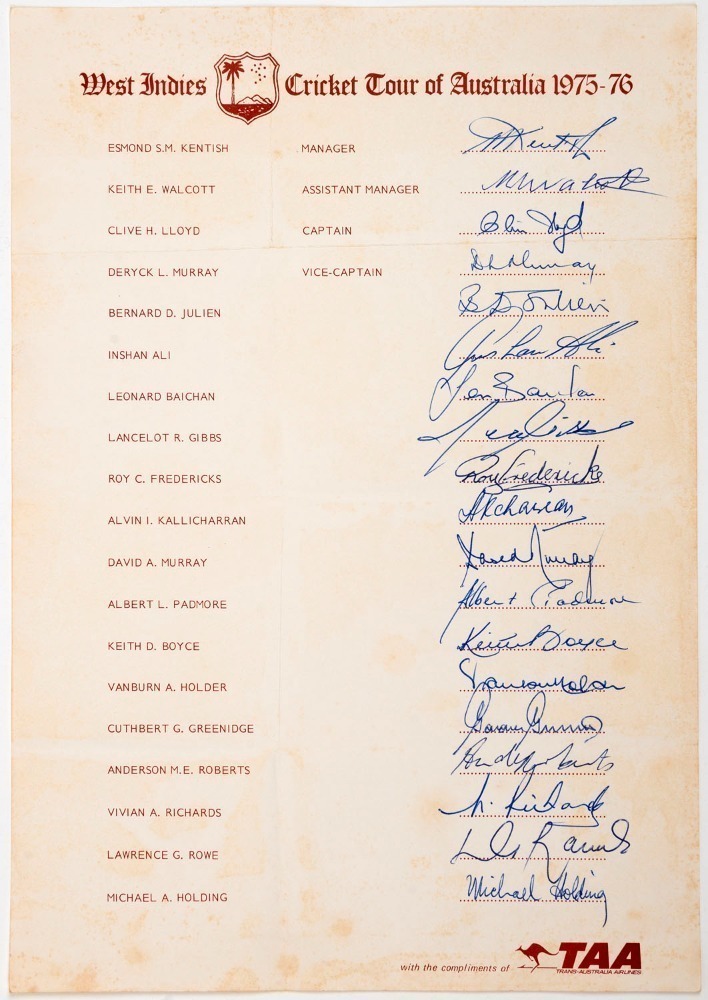 West Indies Cricket Tour of Australia 1975-76
ESMOND S.M. KENTISH MANAGER
KEITH E. WALCOTT ASSISTANT MANAGER
CLIVE H. LLOYD CAPTAIN Clive Lloyd
DERYCK L. MURRAY VICE-CAPTAIN D L Murray
BERNARD D. JULIEN B D Julien
INSHAN ALI Inshan Ali
LEONARD BAICHAN Len Baichan
LANCELOT R. GIBBS
ROY C. FREDERICKS Roy Fredericks
ALVIN I. KALLICHARRAN
DAVID A. MURRAY David Murray
ALBERT L. PADMORE Albert Padmore
KEITH D. BOYCE Keith Boyce
VANBURN A. HOLDER Vanburn Holder
CUTHBERT G. GREENIDGE
ANDERSON M.E. ROBERTS Andy Roberts
VIVIAN A. RICHARDS V. Richards
LAWRENCE G. ROWE
MICHAEL A. HOLDING Michael Holding
with the compliments of TAA
TRANS-AUSTRALIA AIRLINES